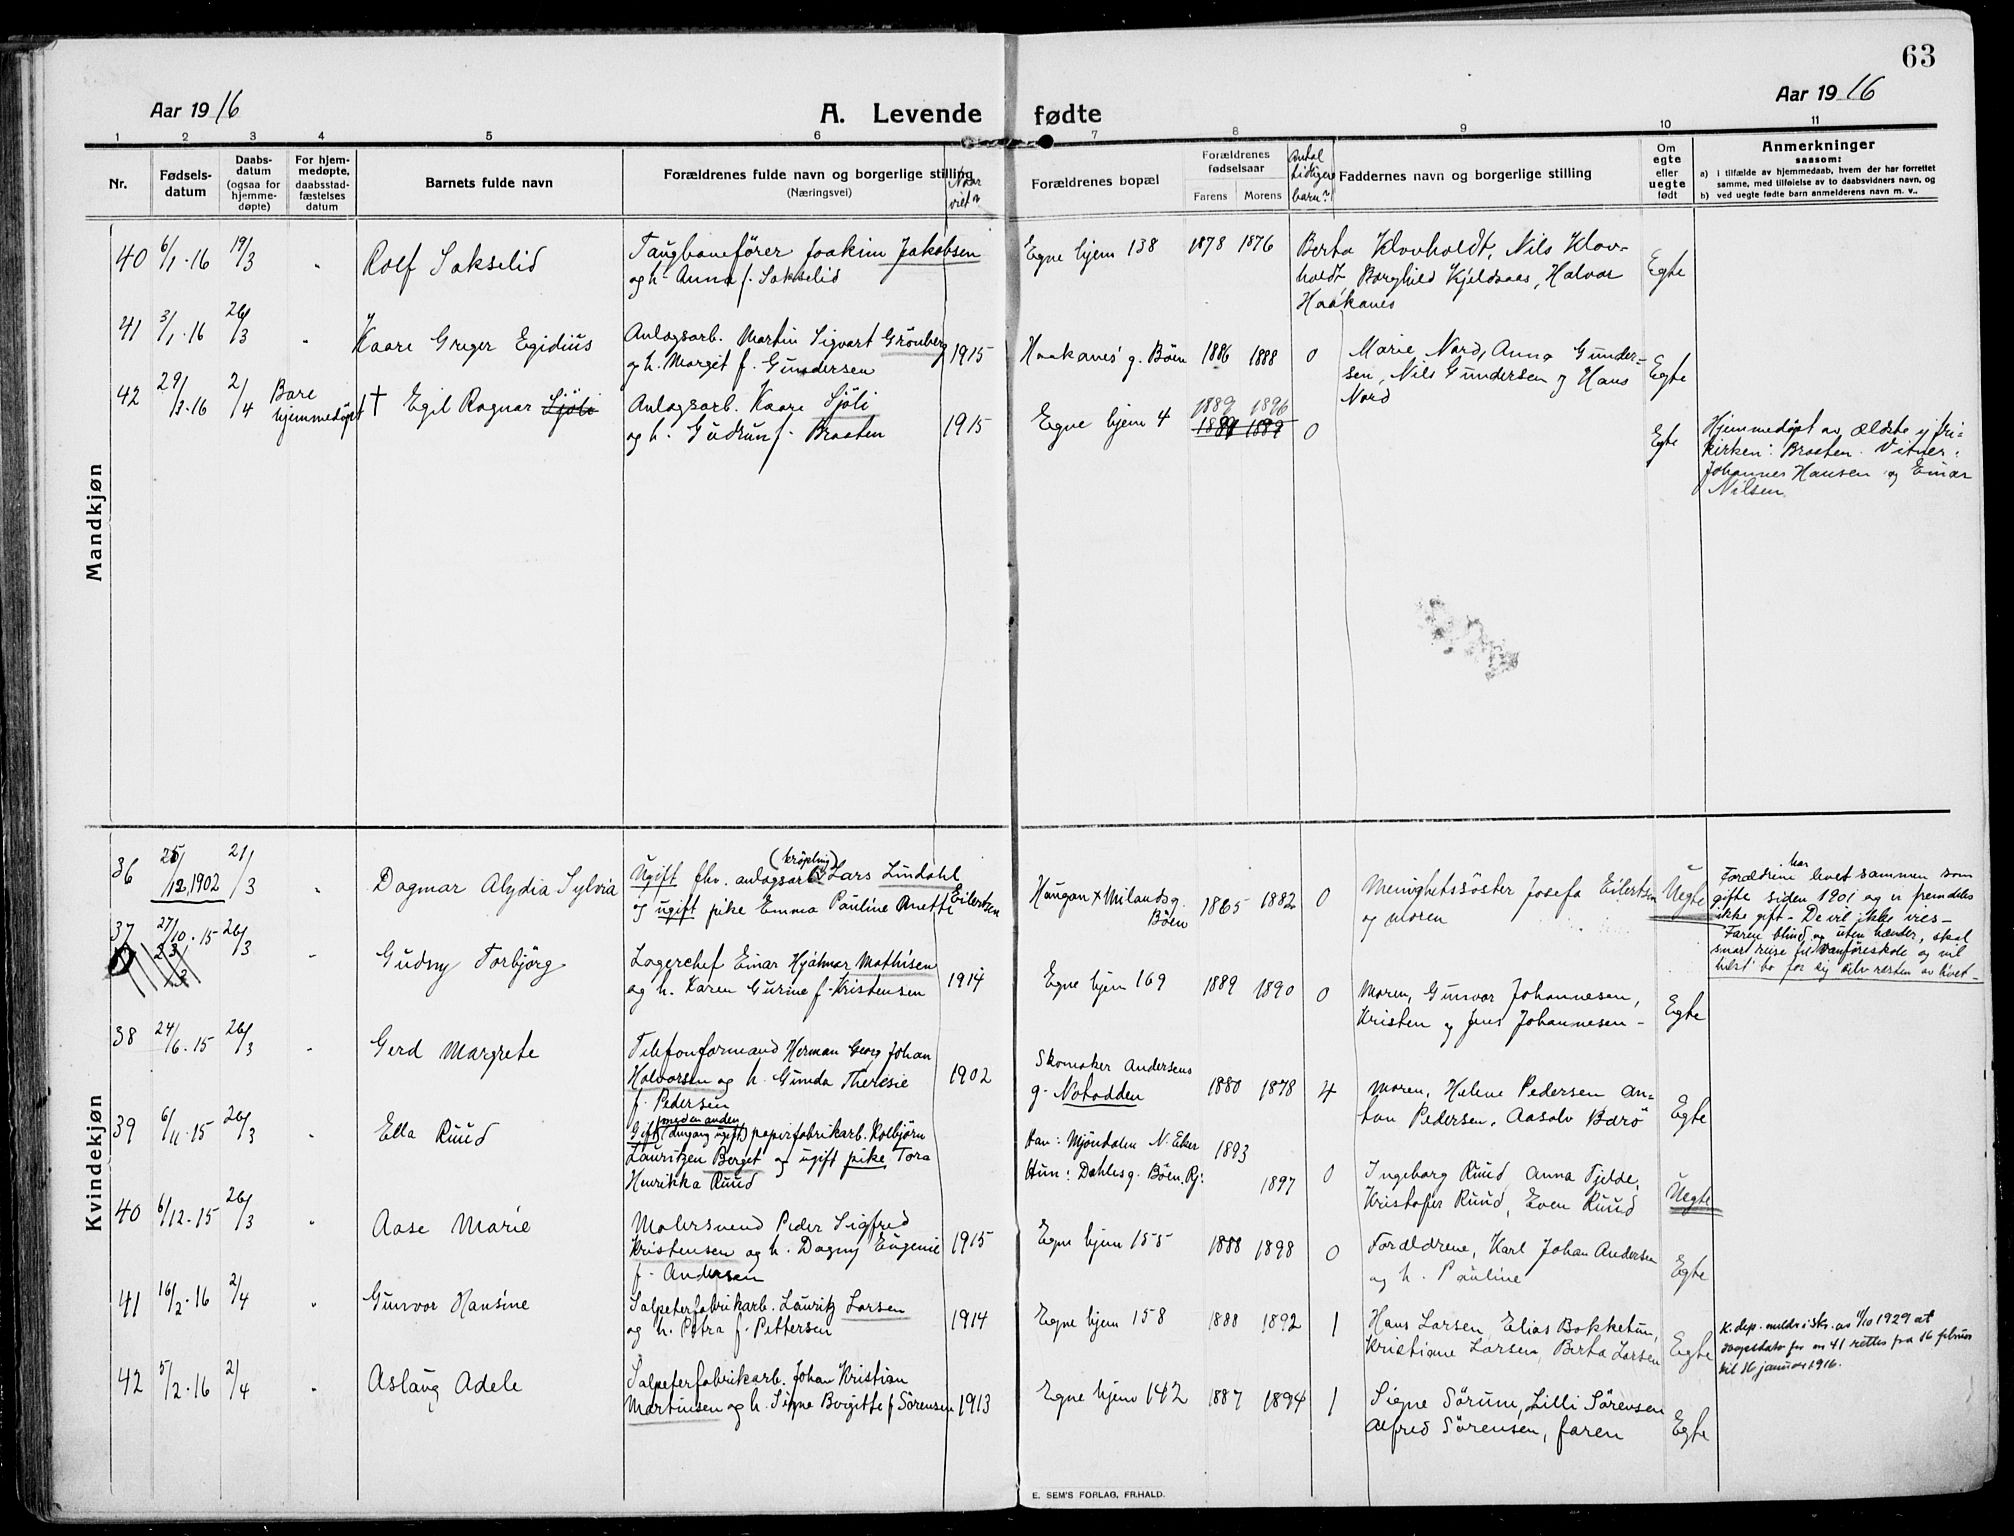 63
Aar 1916
A. Levende fødte
Aar 1916
1 2 3 4 5 6 7 8 9 10 11
Nr.
Fødsels-
datum
Daabs-
datum
(ogsaa for
hjemme-
døpte)
For hjem-
medøpte,
daabsstad-
fæstelses
datum
Barnets fulde navn
Forældrenes fulde navn og borgerlige stilling
(Næringsvei)
Naar
viet?
Forældrenes bopæl
Forældrenes
fødselsaar
Farens Morens
Antal
tidligere
barn?
Faddernes navn og borgerlige stilling
Om
egte
eller
uegte
født
Anmerkninger
saasom:
a) i tilfælde av hjemmedaab, hvem der har forrettet
samme, med tilføielse av to daabsvidners navn, og
b) ved uegte fødte barn anmelderens navn m. v..
Mandkjøn
40 6/1-16 19/3 " Rolf Sakselid
Taugbanefører Joakim Jakobsen
og h. Anna f. Sakselid
Egne hjem 138 1878 1876
Berta Klovholdt, Nils Klov-
holdt, Borghild Kjeldsaas, Halvor
Haakanes
Egte
41 3/1-16 26/3 " Kaare Greger Egidius
Anlagsarb. Martin Sigvart Grönberg
og h. Margit f. Gundersen
1915 Haakanes g. Böen 1886 1888 0
Marie Nord, Anna Gunder-
sen, Nils Gundersen og Hans
Nord
Egte
42 29/3-16 2/4 Bare
hjemmedøpt † Egil Ragnar Sjöli
Anlagsarb. Kaare Sjöli
og h. Gudrun f. Braaten
1915 Egne hjem 4
1889 1896
0
Egte
Hjemmedøpt av ældste i fri-
kirken: Braaten. Vitner:
Johannes Hansen og Einar
Nilsen
Kvindekjøn
36 25/12.1902 21/3 " Dagmar Alydia Sylvia
(krøpling)
Ugift fhv. anlagsarb. Lars Lindahl
og ugift pike Emma Pauline Anette Eilertsen
Haugan x Milandsg.
Böen
1865 1882 0
Menighetssöster Josefa Eilertsen
og moren
Uegte
Forældrene har levet sammen som
gifte siden 1901 og er fremdeles
ikke gift. De vil ikke vies -
Faren blind og uten hænder, skal
snart reise til vanföreskole og vil
helst bo for sig selv resten av livet -
37 27/10-15 26/3 " Gudny Torbjörg
Lagerchef Einar Hjalmar Mathisen
og h. Karen Gurine f. Kristensen
1914 Egne hjem 169 1889 1890 0
Moren, Gunvor Johannesen,
Kristen og Jens Johannesen -
Egte
38 24/6-15 26/3 " Gerd Margrete
Telefonformand Herman Georg Johan
Halvorsen og h. Gunda Theresie
f. Pedersen
1902
Skomaker Andersens
g. Notodden
1880 1878 4
Moren, Helene Pedersen An-
ton Pedersen, Aasolv Barö
Egte
39 6/11-15 26/3 " Ella Ruud
med en anden
Gift (dengang ugift) papirfabrikarb. Kolbjörn
Lauritzen Berget og ugift pike Tora
Henrikka Ruud
Han: Mjöndalen N. Eker
Hun: Dahlesg. Böen. Rj:
1893
1897 0
Ingeborg Ruud, Anna Tjelde,
Kristofer Ruud, Even Ruud
Uegte
40 6/12-15 26/3 " Aase Marie
Malersvend Peder Sigfred
Kristensen og h. Dagny Eugenie
f. Andersen
1915 Egne hjem 155 1888 1898 0
Forældrene, Karl Johan Andersen
og h. Pauline
Egte
41 16/2-16 2/4 " Gunvor Hansine
Salpeterfabrikarb. Lauritz Larsen
og h. Petra f. Pettersen
1914 Egne hjem 158 1888 1892 1
Hans Larsen, Elias Bokketun,
Kristiane Larsen, Berta Larsen
Egte
K. dep. meldr i skr. av 11/10 1929 at
for nr 41 rettes fra 16 februar
til 16 januar 1916.
42 5/2-16 2/4 " Aslaug Adele
Salpeterfabrikarb. Johan Kristian
Martinsen og h. Signe Borgitte f Sörensen
1913 Egne hjem 142 1887 1894 1
Signe Sörum, Lilli Sörensen
Alfred Sörensen, faren
Egte
E. SEM'S FORLAG, FR.HALD.